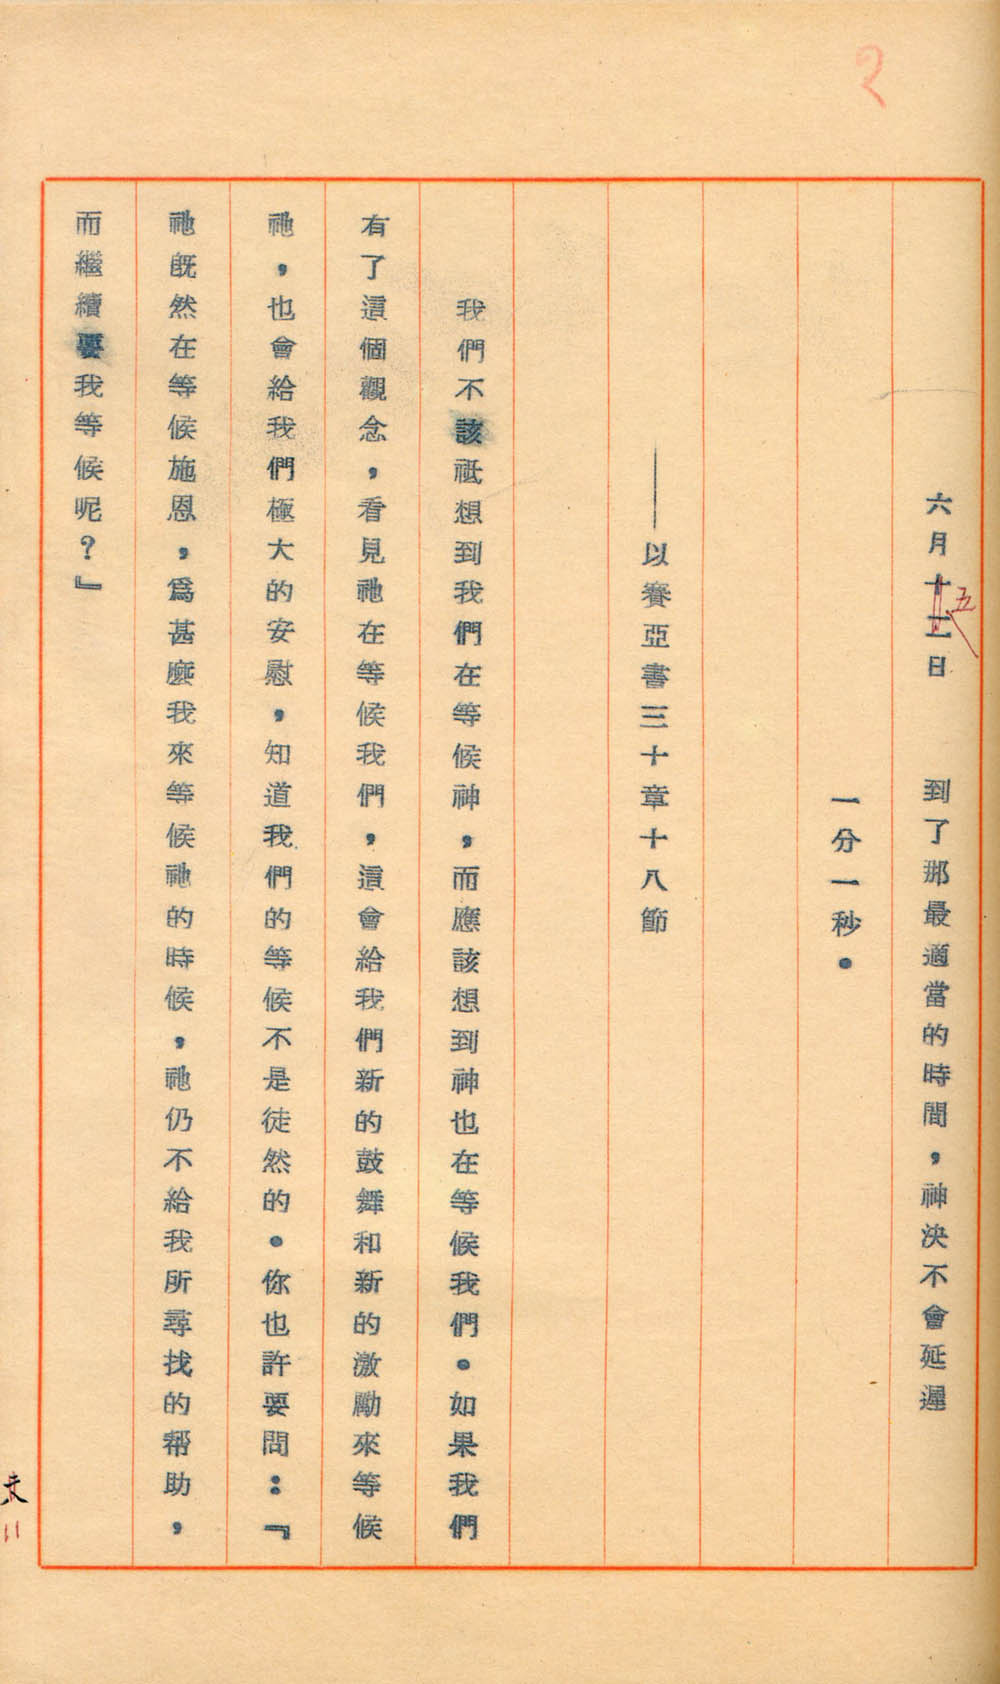 2
六月十二日　　到了那最適當的時間，神決不會延遲
五
一分一秒。
——以賽亞書三十章十八節
我們不該祗想到我們在等候神，而應該想到神也在等候我們。如果我們
有了這個觀念，看見祂在等候我們，這會給我們新的鼓舞和新的激勵來等候
祂，也會給我們極大的安慰，知道我們的等候不是徒然的。你也許要問：『
祂既然在等候施恩，爲甚麼我來等候祂的時候，祂仍不給我所尋找的幫助，
而繼續要我等候呢？』
11